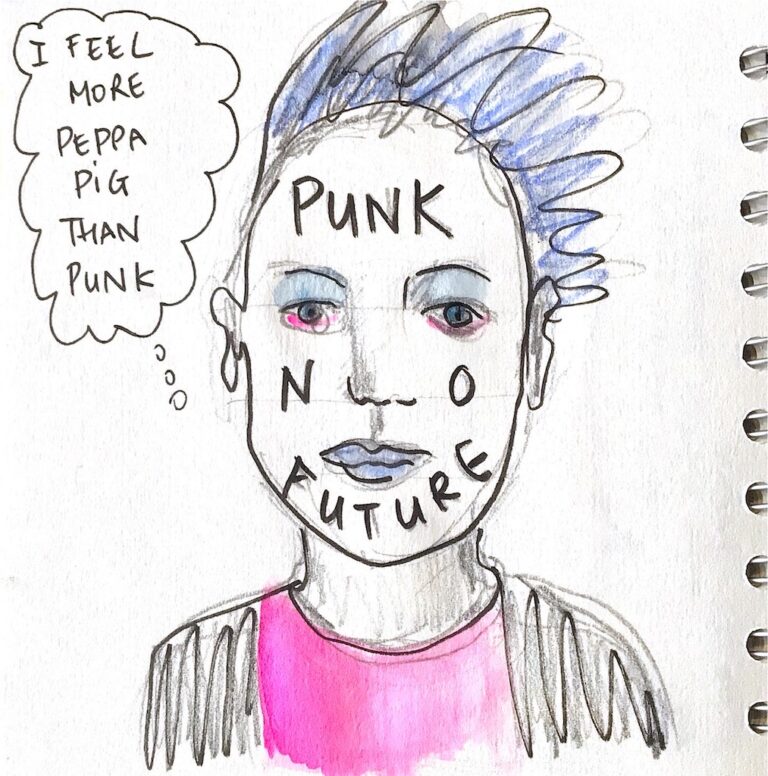 I FEEL
MORE
PEPPA
PiG
THAN
PUNK
PUNK
N O
FUTURE